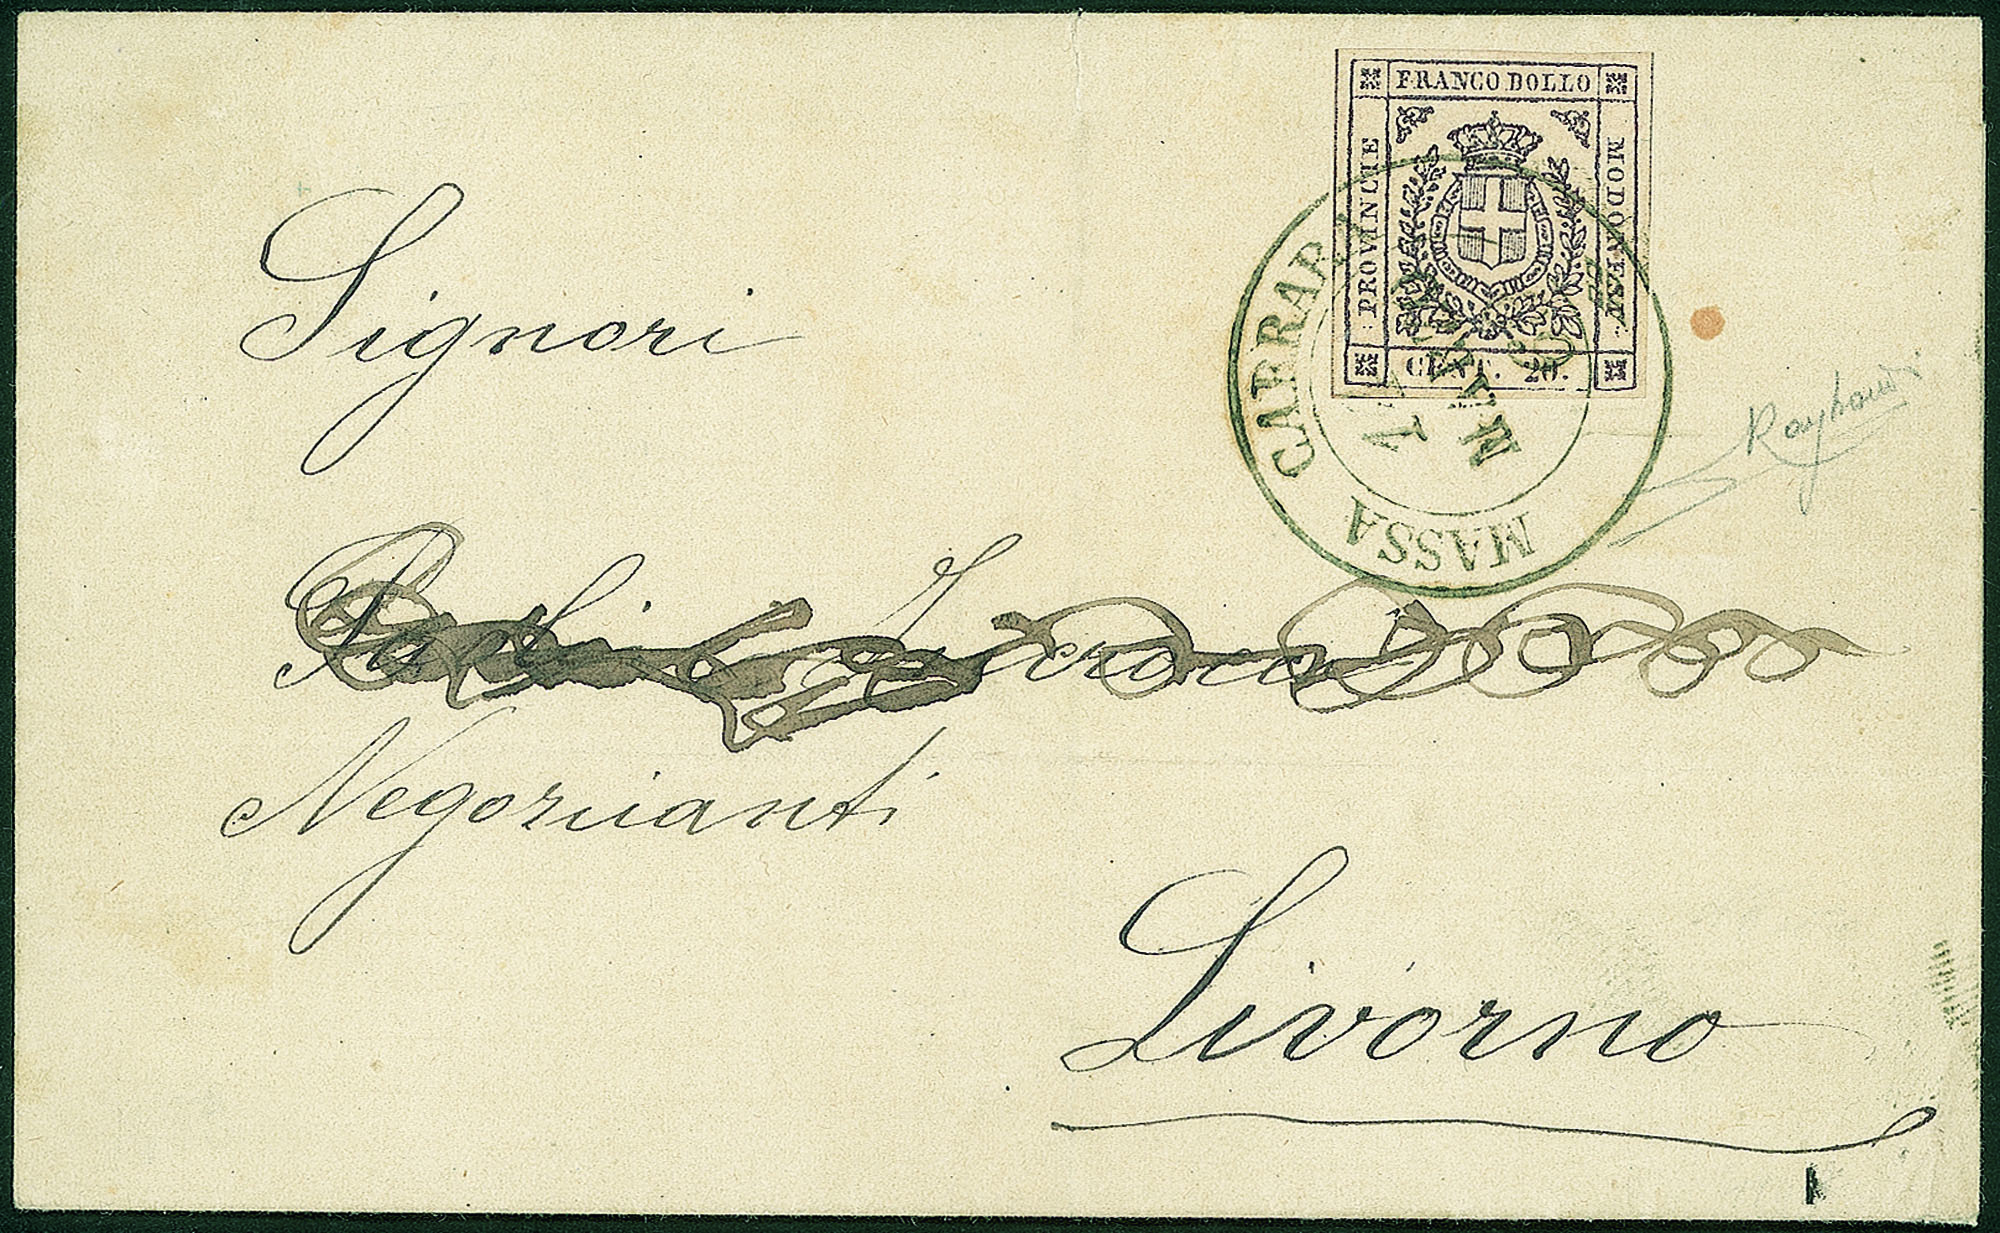 FRANCO BOLLO
PROVINCIE
MODONESI
CENT. 20.
MASSA CARRARA
MAR
Signori
Negozianti
Livorno
Raybaudi